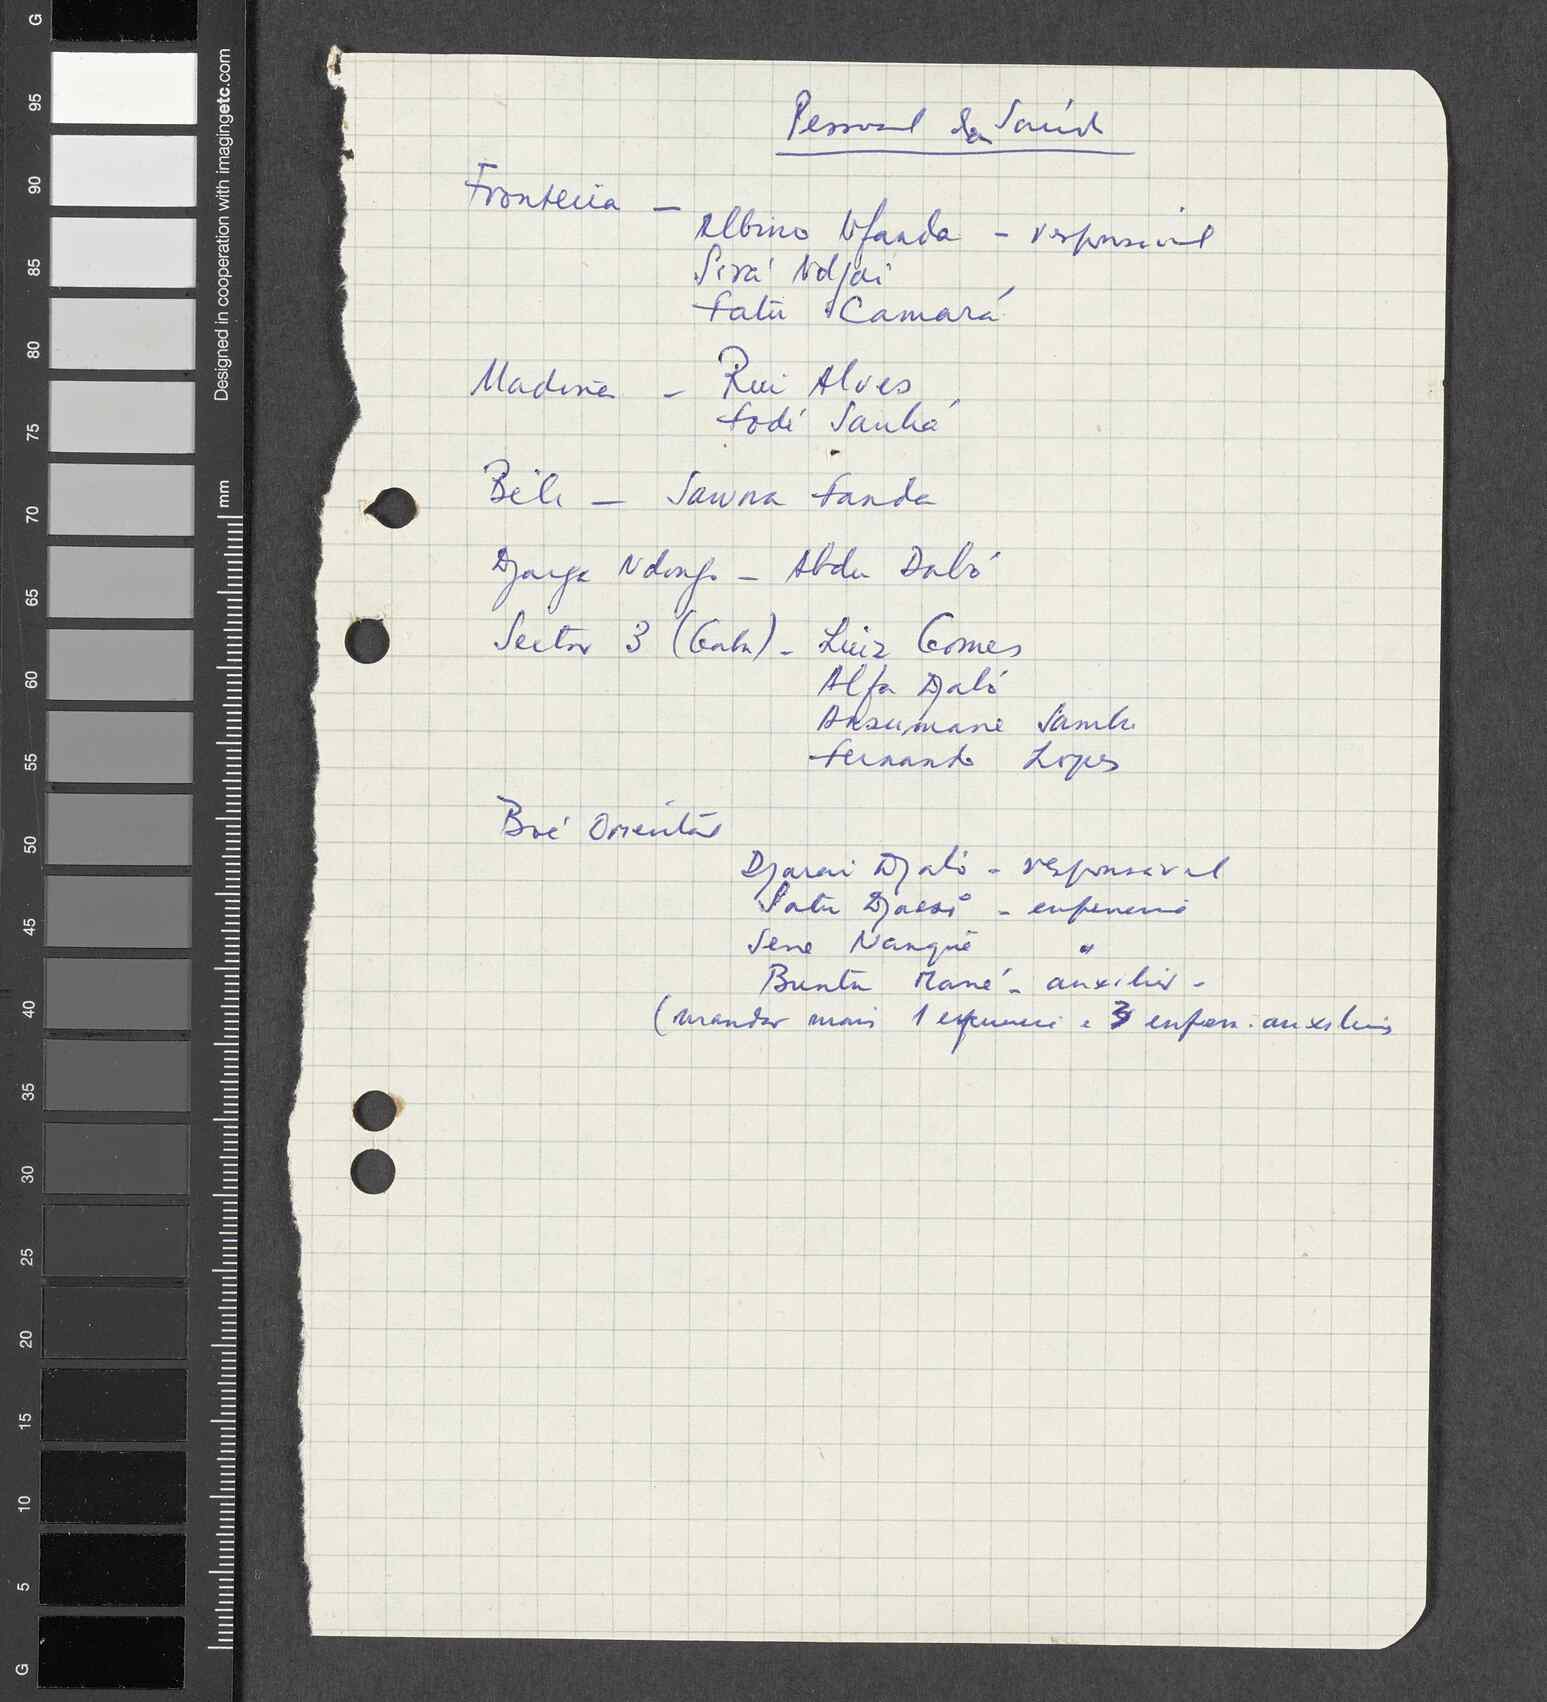 Pessoal da Saúde
Fronteira —
Albino Nfanda - responsável
Sirá Ndjai
Fatú Camará
Madina - Rui Alves
Fodé Sanhá
Béli — Fanda
Djanga Ndongo - Abdu Dabó
Sector 3 (Gabu) - Luiz Gomes
Alfa Djaló
Ansumane Sambu
Fernando Lopes
Boé Oriental
Djarai Djaló - responsável
Satu Djassi - enfermeira
Sene Nanqué "
Buntu Mané - auxiliar -
(mandar mais 1 enfermeiro e 3 enferm. auxiliares
G
95
90
85
80
75
70
65
60
55
50
45
40
35
30
25
20
15
10
5
G
mm
Designed in cooperation with imagingetc.com